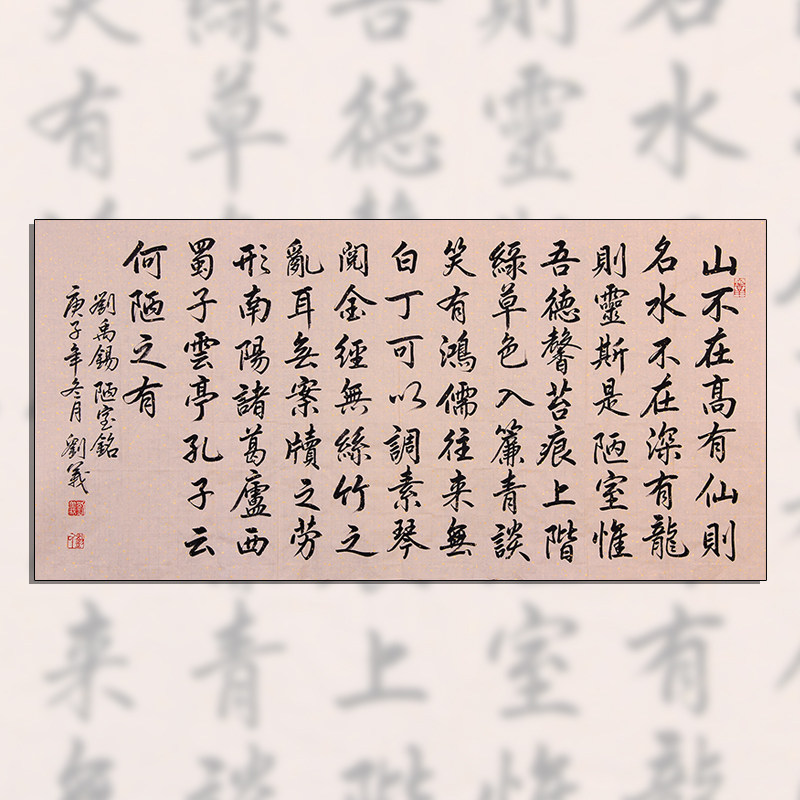 山不在高有仙則
名水不在深有龍
則靈斯是陋室惟
吾德馨苔痕上階
綠草色入簾青談
笑有鴻儒往来無
白丁可以調素琴
閱金經無絲竹之
亂耳無案牘之劳
形南陽諸葛廬西
蜀子雲亭孔子云
何陋之有
劉禹錫陋室銘
庚子年冬月劉義